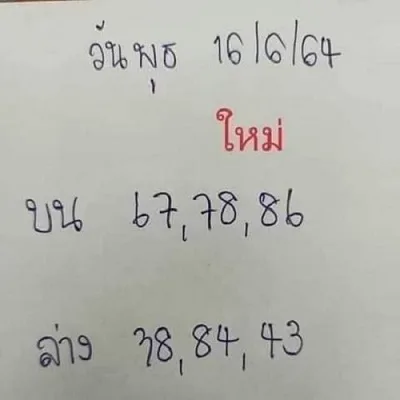 วันพุธ 16/6/64
ใหม่
บน 67,78,86
ล่าง 38,84,43